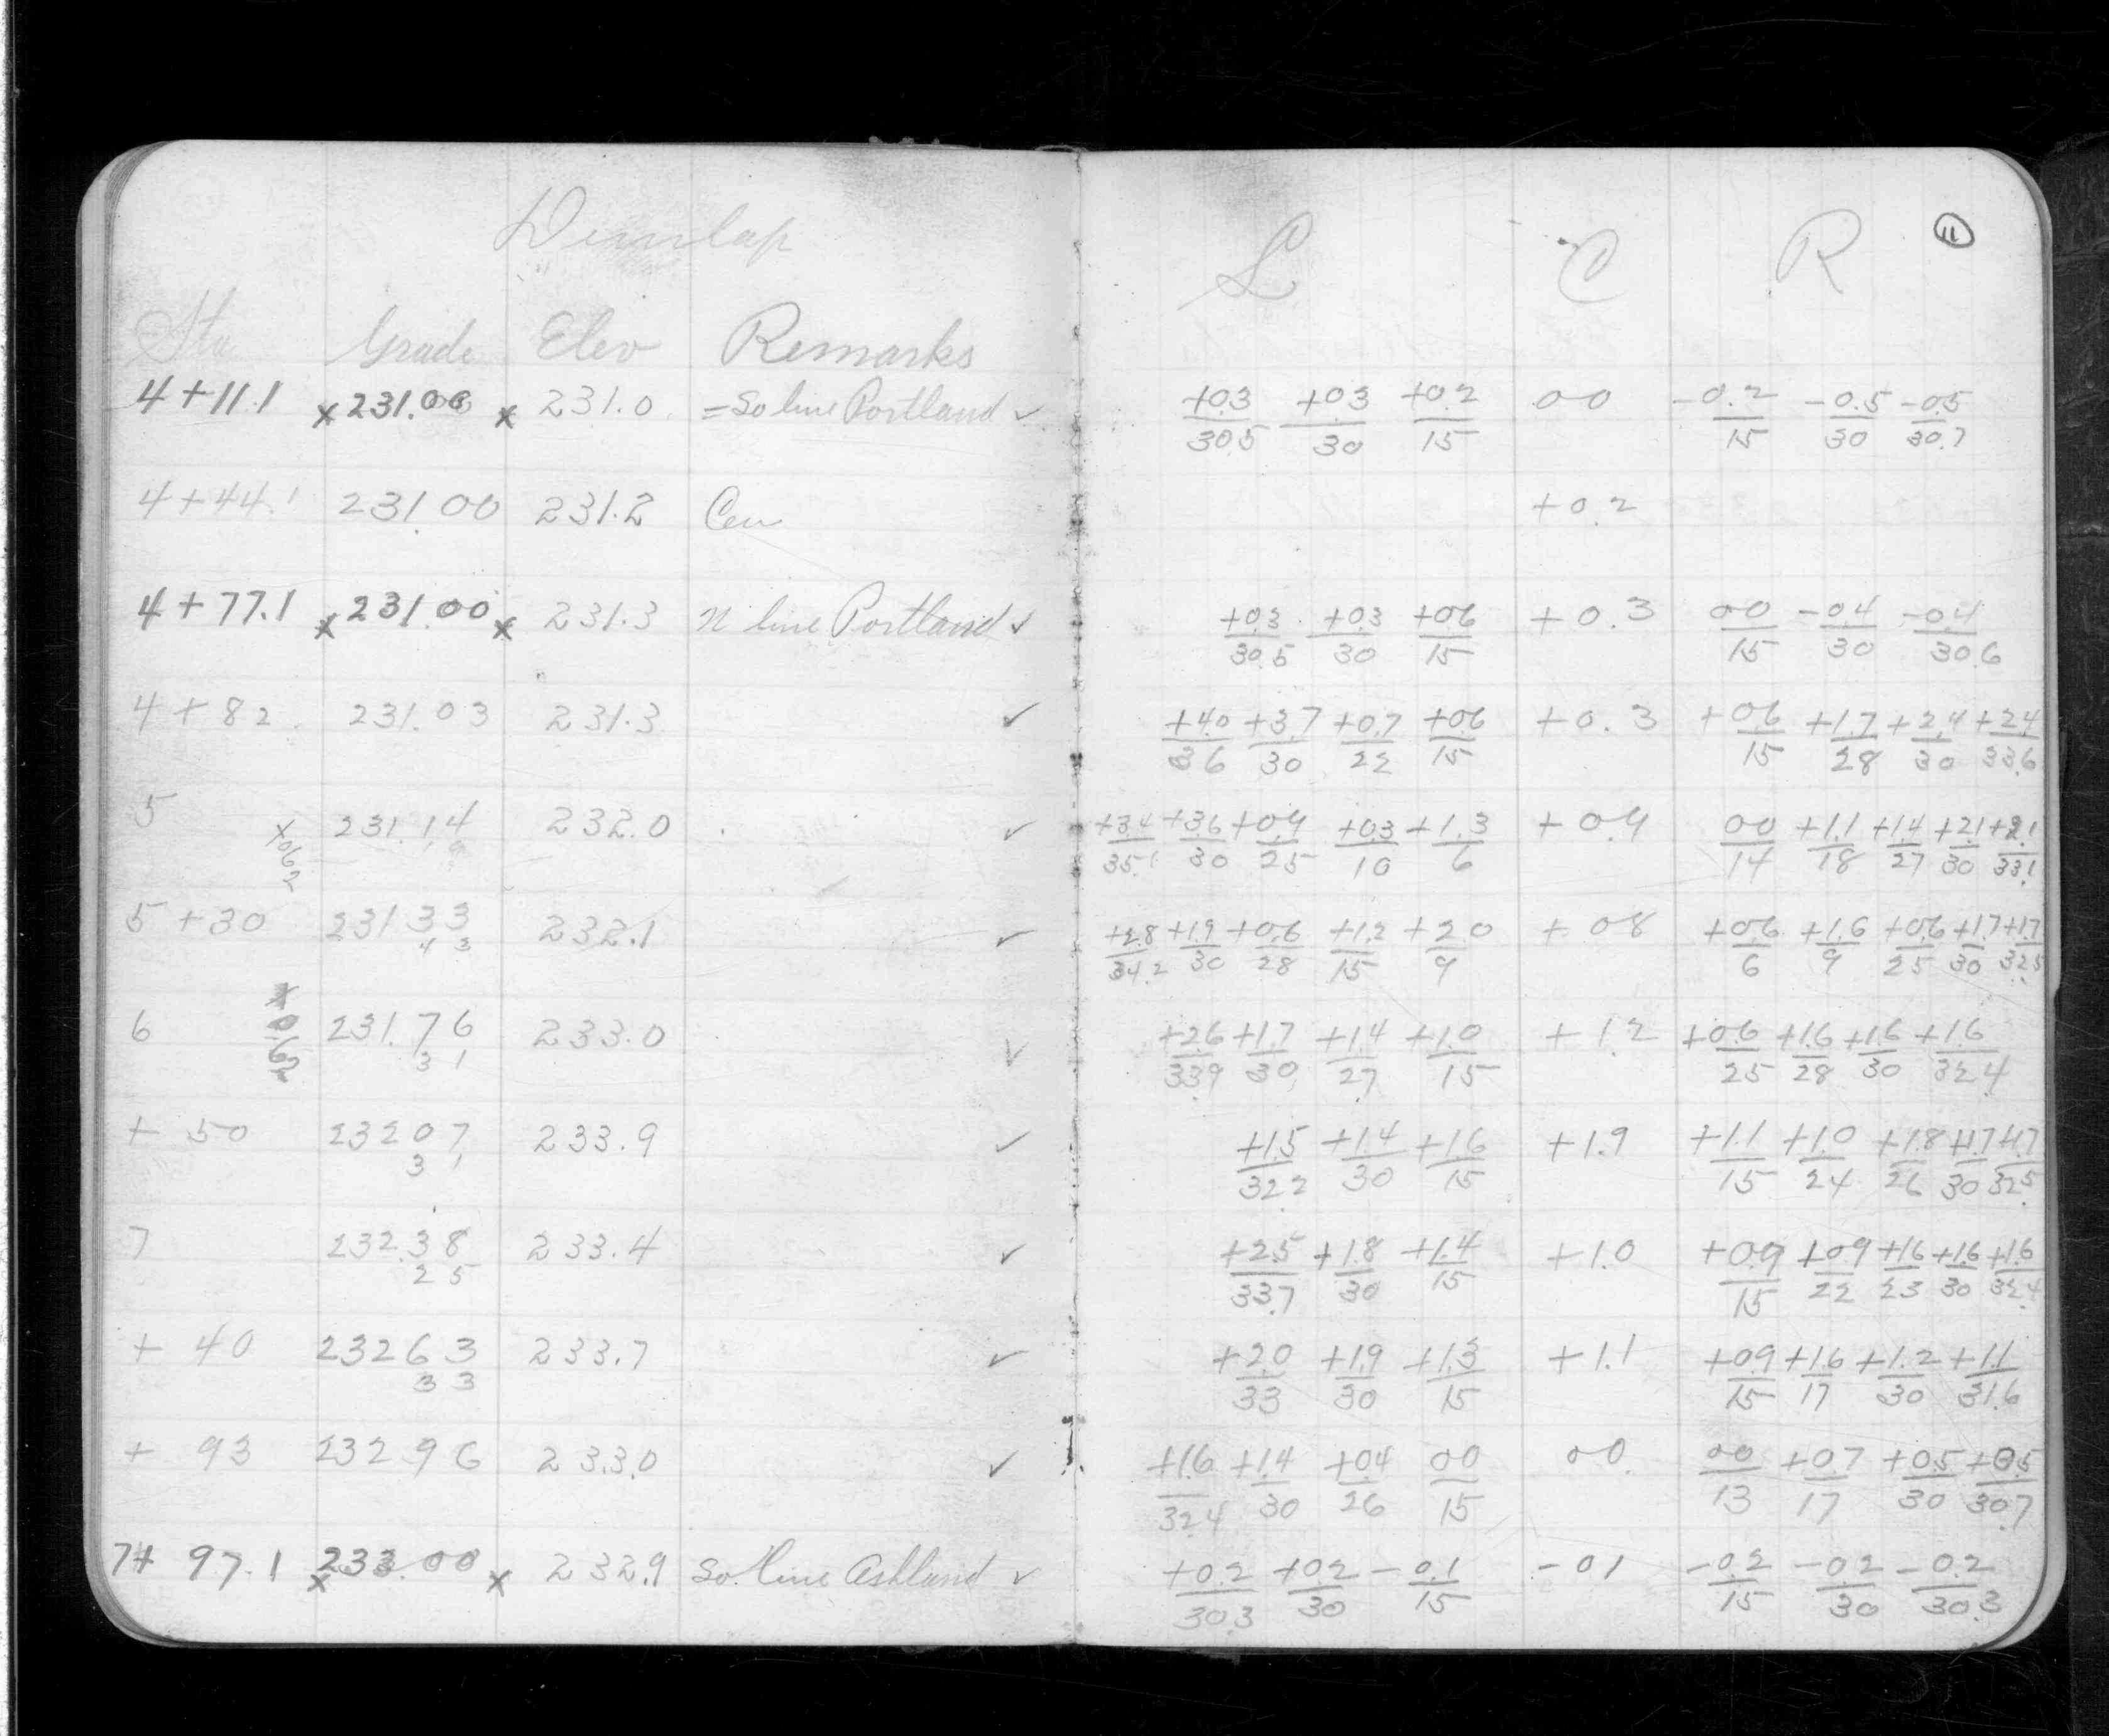 Dunlap
Sta Grade Elev Remarks
4+11.1 x 231.00 x 231.0 = So line Portland ✓
4+44.1 231.00 231.2 Cen
4+77.1 x 231.00 x 231.3 N line Portland ✓
4+82 231.03 231.3 ✓
5 231.14 232.0 ✓
x 0.62
5+30 231 33 232.1 ✓
43
6 231.76 233.0 ✓
x 0.62 31
+ 50 232 07 233.9 ✓
31
7 232.38 233.4 ✓
25
+ 40 232 63 233.7 ✓
33
+ 93 232 96 233.0 ✓
7+ 97.1 x 233.00 x 232.9 So. line Ashland ✓
11
L C R
+0.3/30.5 +0.3/30 +0.2/15 00 -0.2/15 -0.5/30 -0.5/30.7
+0.2
+0.3/30.5 +0.3/30 +0.6/15 +0.3 00/15 -0.4/30 -0.4/30.6
+4.0/36 +3.7/30 +0.7/22 +0.6/15 +0.3 +0.6/15 +1.7/28 +2.4/30 +2.4/33.6
+3.4/35.1 +3.6/30 +0.9/25 +0.3/10 +1.3/6 +0.9 00/14 +1.1/18 +1.4/27 +2.1/30 +2.1/33.1
+2.8/34.2 +1.9/30 +0.6/28 +1.2/15 +2.0/9 +0.8 +0.6/6 +1.6/9 +0.6/25 +1.7/30 +1.7/32.5
+2.6/33.9 +1.7/30 +1.4/27 +1.0/15 +1.2 +0.6/25 +1.6/28 +1.6/30 +1.6/32.4
+1.5/32.2 +1.4/30 +1.6/15 +1.9 +1.1/15 +1.0/24 +1.8/26 +1.7/30 +1.7/32.5
+2.5/33.7 +1.8/30 +1.4/15 +1.0 +0.9/15 +0.9/22 +1.6/23 +1.6/30 +1.6/32.4
+2.0/33 +1.9/30 +1.3/15 +1.1 +0.9/15 +1.6/17 +1.2/30 +1.1/31.6
+1.6/32.4 +1.4/30 +0.4/26 00/15 00 00/13 +0.7/17 +0.5/30 +0.5/30.7
+0.2/30.3 +0.2/30 -0.1/15 -0.1 -0.2/15 -0.2/30 -0.2/30.3